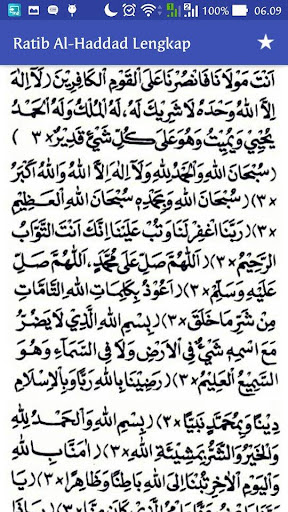 100% 06.09
Ratib Al-Haddad Lengkap
اَنْتَ مَوْلَانَا فَانْصُرْنَا عَلَى الْقَوْمِ الْكَافِرِيْنَ (لَآ اِلٰهَ
اِلَّا اللهُ وَحْدَهُ لَا شَرِيْكَ لَهُ، لَهُ الْمُلْكُ وَلَهُ الْحَمْدُ
يُحْيِيْ وَيُمِيْتُ وَهُوَ عَلَى كُلِّ شَيْءٍ قَدِيْرٌ ×٣)
(سُبْحَانَ اللهِ وَالْحَمْدُ لِلّٰهِ وَلَآ اِلٰهَ اِلَّا اللهُ وَاللهُ اَكْبَرُ
×٣) (سُبْحَانَ اللهِ وَبِحَمْدِهِ سُبْحَانَ اللهِ الْعَظِيْمِ
×٣) (رَبَّنَا اغْفِرْ لَنَا وَتُبْ عَلَيْنَا اِنَّكَ اَنْتَ التَّوَّابُ
الرَّحِيْمُ ×٣) (اَللّٰهُمَّ صَلِّ عَلَى مُحَمَّدٍ، اَللّٰهُمَّ صَلِّ
عَلَيْهِ وَسَلِّمْ ×٣) (اَعُوْذُ بِكَلِمَاتِ اللهِ التَّامَّاتِ
مِنْ شَرِّ مَا خَلَقَ ×٣) (بِسْمِ اللهِ الَّذِيْ لَا يَضُرُّ
مَعَ اسْمِهِ شَيْءٌ فِي الْاَرْضِ وَلَا فِي السَّمَآءِ وَهُوَ
السَّمِيْعُ الْعَلِيْمُ ×٣) (رَضِيْنَا بِاللهِ رَبًّا وَبِالْاِسْلَامِ
دِيْنًا وَبِمُحَمَّدٍ نَبِيًّا ×٣) (بِسْمِ اللهِ وَالْحَمْدُ لِلّٰهِ
وَالْخَيْرُ وَالشَّرُّ بِمَشِيْئَةِ اللهِ ×٣) (اٰمَنَّا بِاللهِ
وَالْيَوْمِ الْاٰخِرِ تُبْنَا اِلَى اللهِ بَاطِنًا وَظَاهِرًا ×٣) (يَا